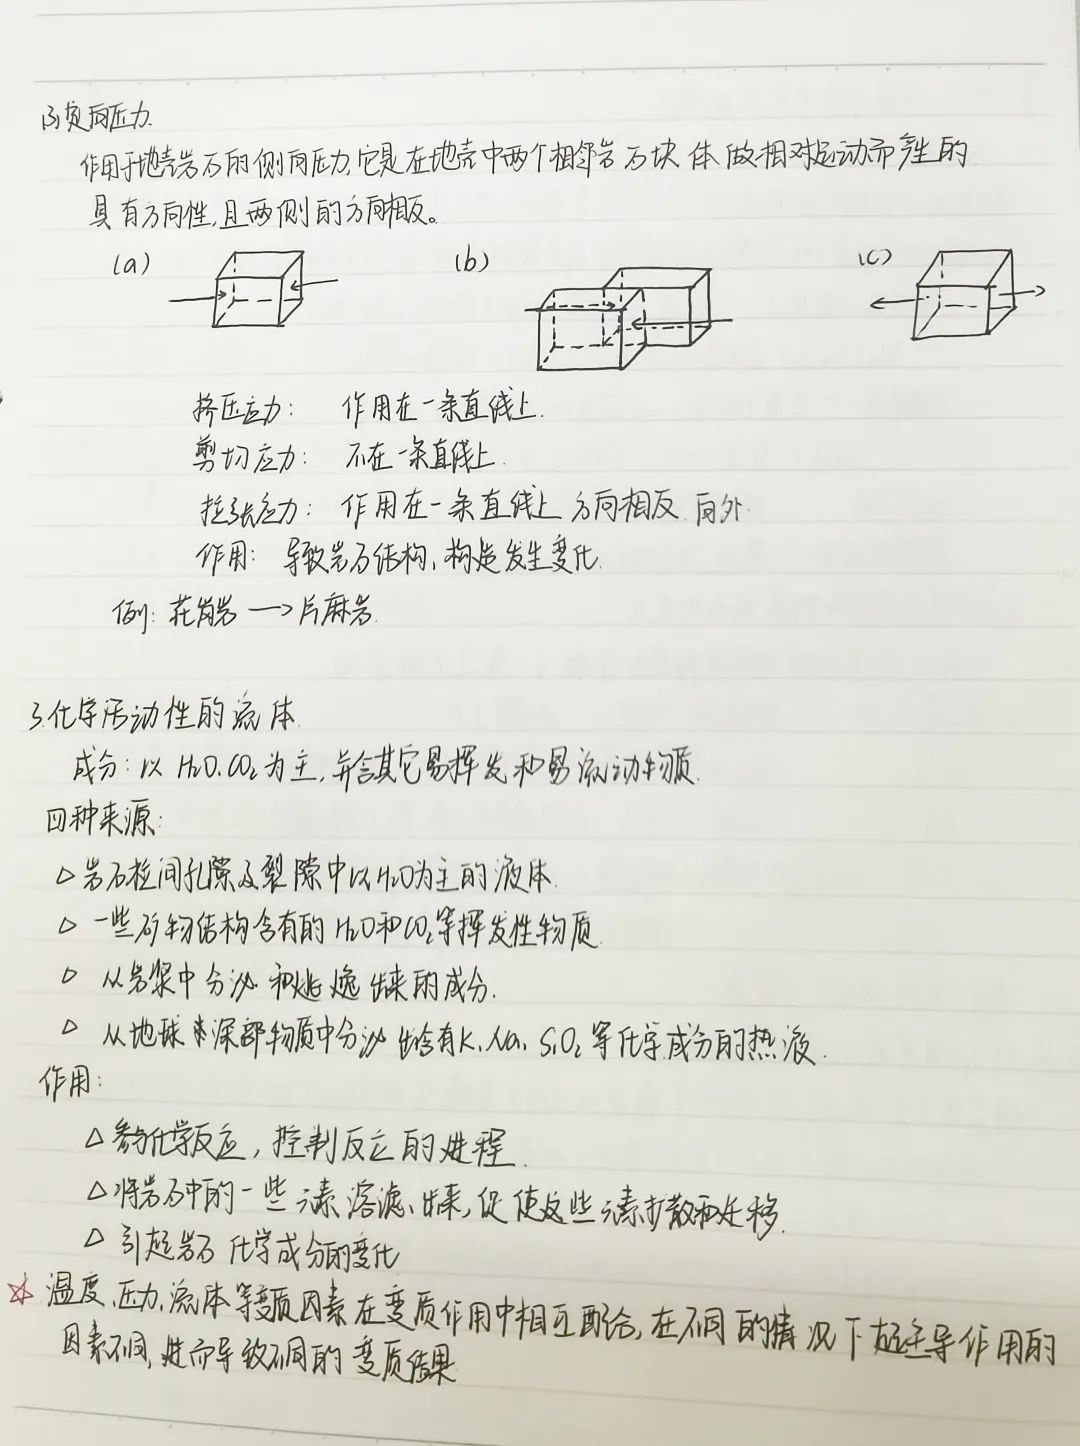 (3)定向压力.
作用于地壳岩石的侧向压力,它是在地壳中两个相邻岩石块体做相对运动而产生的
具有方向性,且两侧的方向相反。
(a) (b) (c)
挤压应力: 作用在一条直线上.
剪切应力: 不在一条直线上.
拉张应力: 作用在一条直线上 方向相反 向外.
作用: 导致岩石结构、构造发生变化.
例: 花岗岩 → 片麻岩.
3.化学活动性的流体.
成分: 以 H₂O、CO₂为主,并含其它易挥发和易流动物质.
四种来源:
△岩石粒间孔隙及裂隙中以H₂O为主的液体.
△一些矿物结构含有的H₂O和CO₂等挥发性物质.
△从岩浆中分泌和逃逸出来的成分.
△从地球深部物质中分泌出含有K、Na、SiO₂等化学成分的热液.
作用:
△参与化学反应,控制反应的进程.
△将岩石中的一些元素溶滤、出来,促使这些元素扩散和迁移.
△引起岩石化学成分的变化
☆温度、压力、流体等变质因素在变质作用中相互配合,在不同的情况下起主导作用的
因素不同,进而导致不同的变质结果